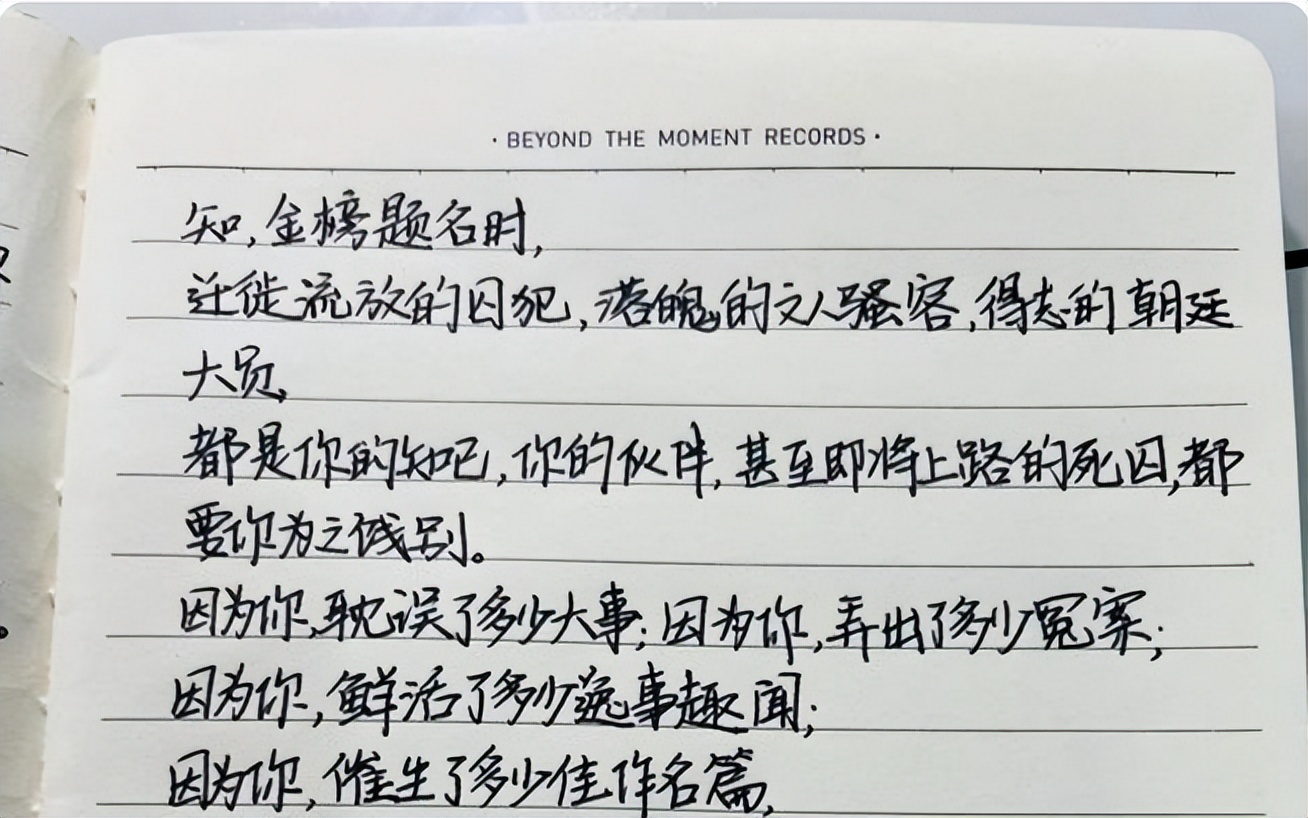 · BEYOND THE MOMENT RECORDS ·
知,金榜题名时,
迁徙流放的囚犯,落魄的文人骚客,得志的朝廷
大员,
都是你的知吧,你的伙伴,甚至即将上路的死囚,都
要你为之饯别。
因为你,耽误了多少大事;因为你,弄出了多少冤案;
因为你,鲜活了多少逸事趣闻;
因为你,催生了多少佳作名篇,